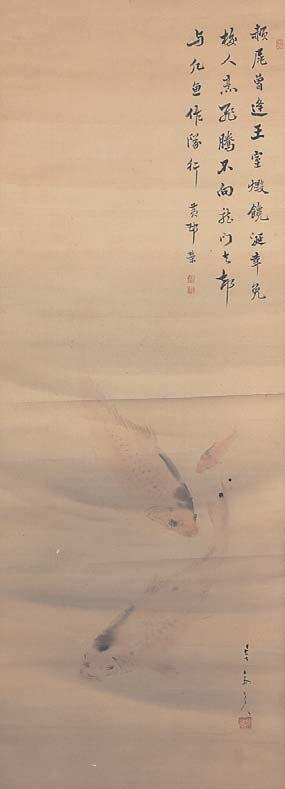 赬尾曾逢王室燬饞涎幸免
校人烹飛騰不向龍門去却
与凡魚作隊行 黄邨棨